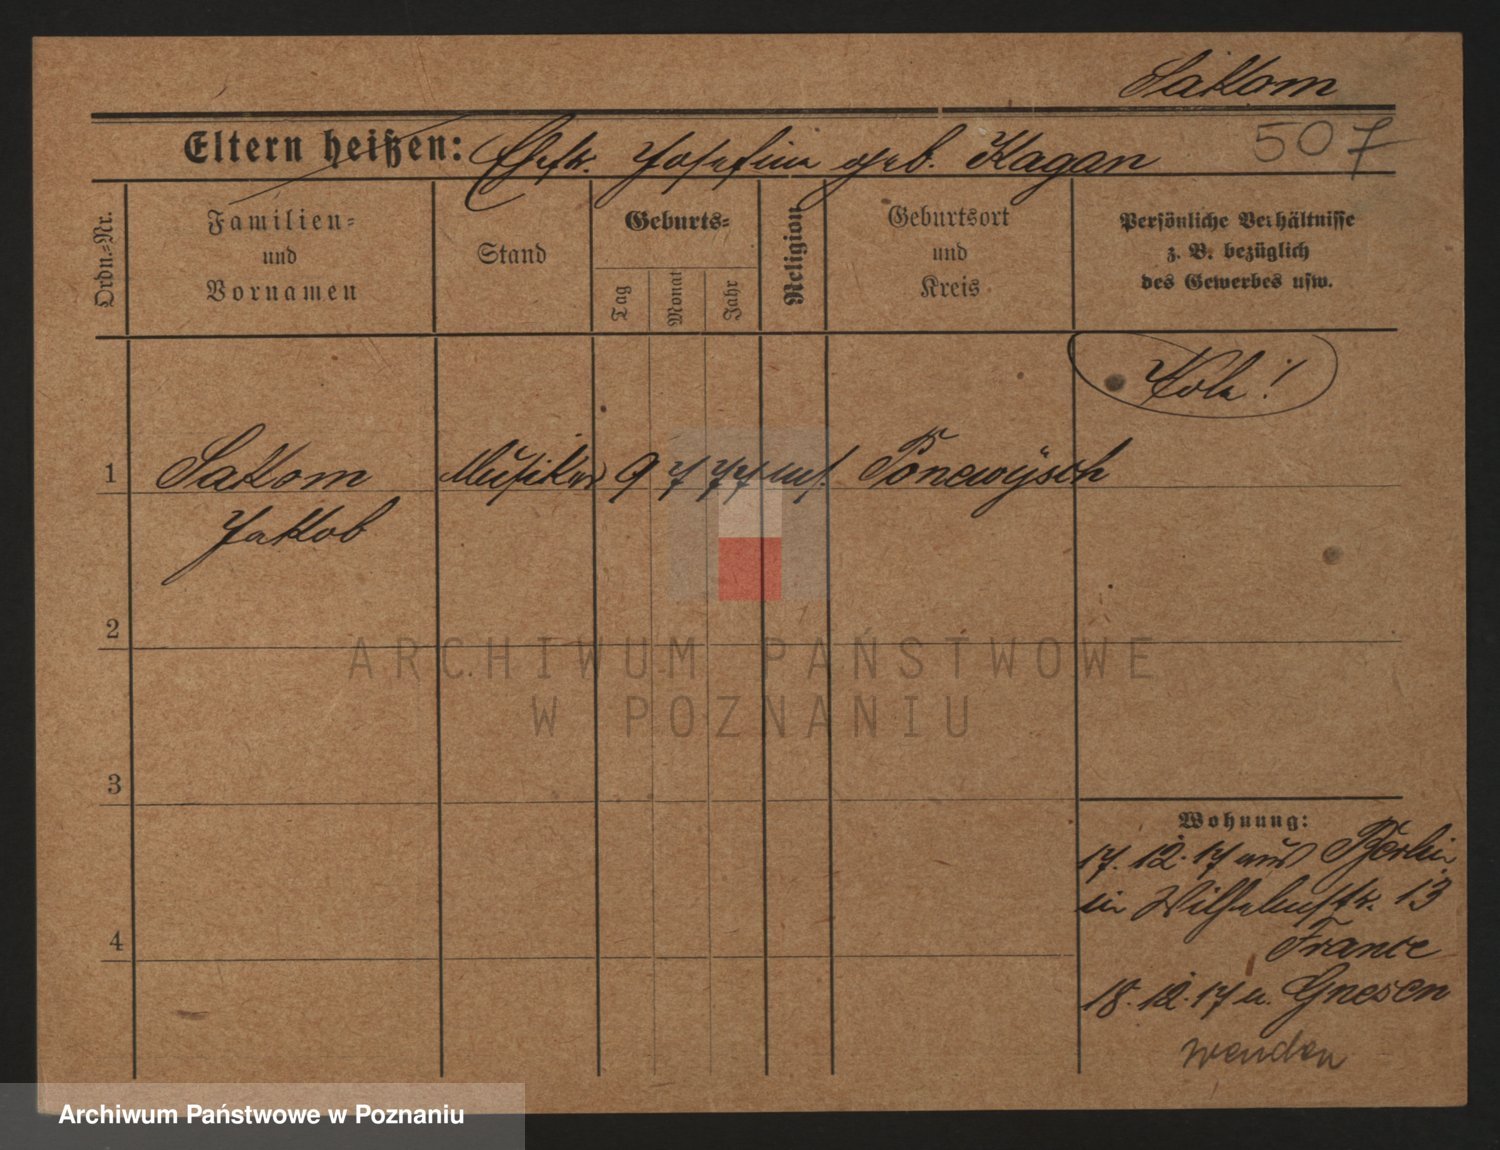 Sakom
507
Eltern heißen: Ehefr. Josefine geb. Kagan
Ordn.-Nr.
Familien-
und
Vornamen
Stand
Geburts-
Tag
Monat
Jahr
Religion
Geburtsort
und
Kreis
Persönliche Verhältnisse
z. B. bezüglich
des Gewerbes usw.
1
Sakom Musiker 9 7 77 mos. Ponewysch
Jakob
2
ARCHIWUM PAŃSTWOWE
W POZNANIU
3
4
Wohnung:
17. 12. 17 aus Berlin
in Wilhelmstr. 13
France
18. 12. 17 n. Gnesen
wenden
Archiwum Państwowe w Poznaniu